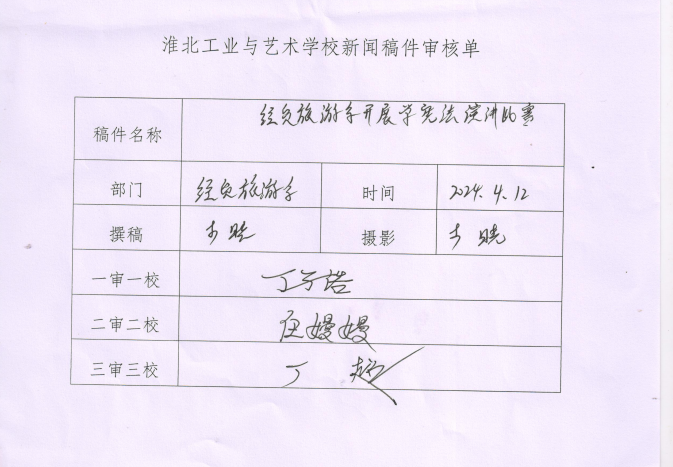 淮北工业与艺术学校新闻稿件审核单
稿件名称 经贸旅游系开展学宪法演讲比赛
部门 经贸旅游系 时间 2024.4.12
撰稿 摄影
一审一校 丁子诺
二审二校 嫚嫚
三审三校 丁